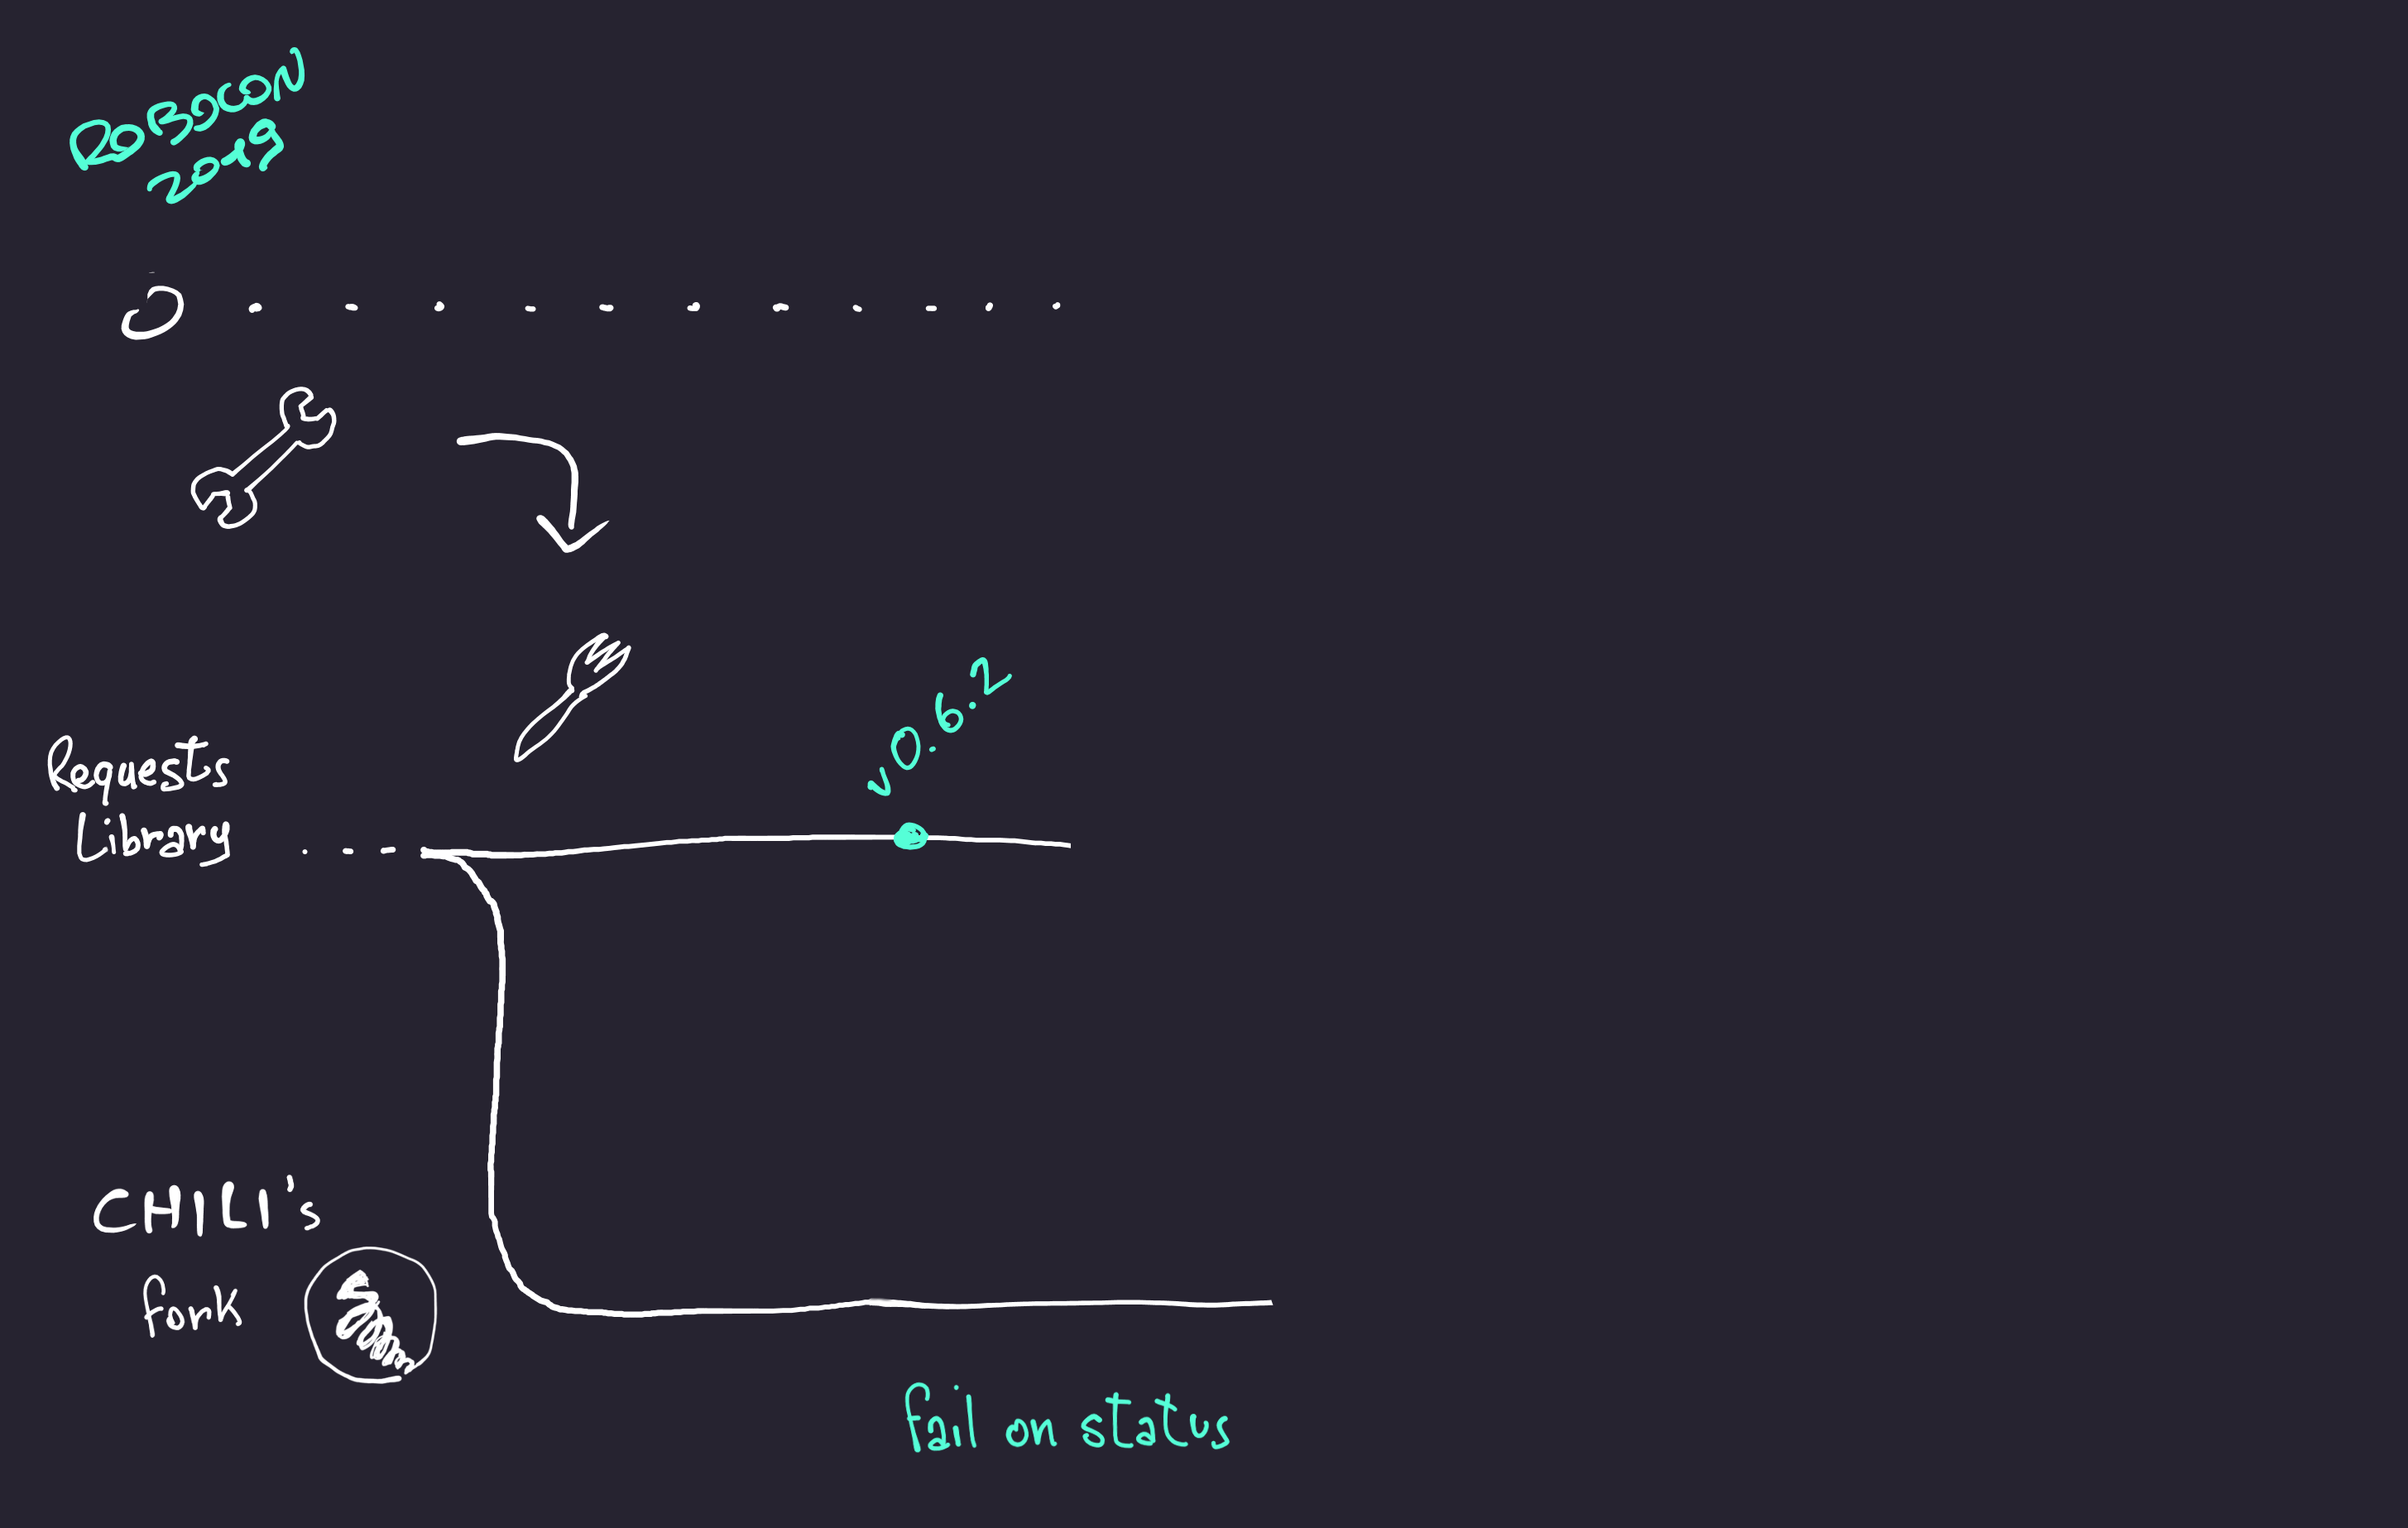 ROBOCON
2019
v0.6.2
Requests
Library
CHILI's
fork
fail on status